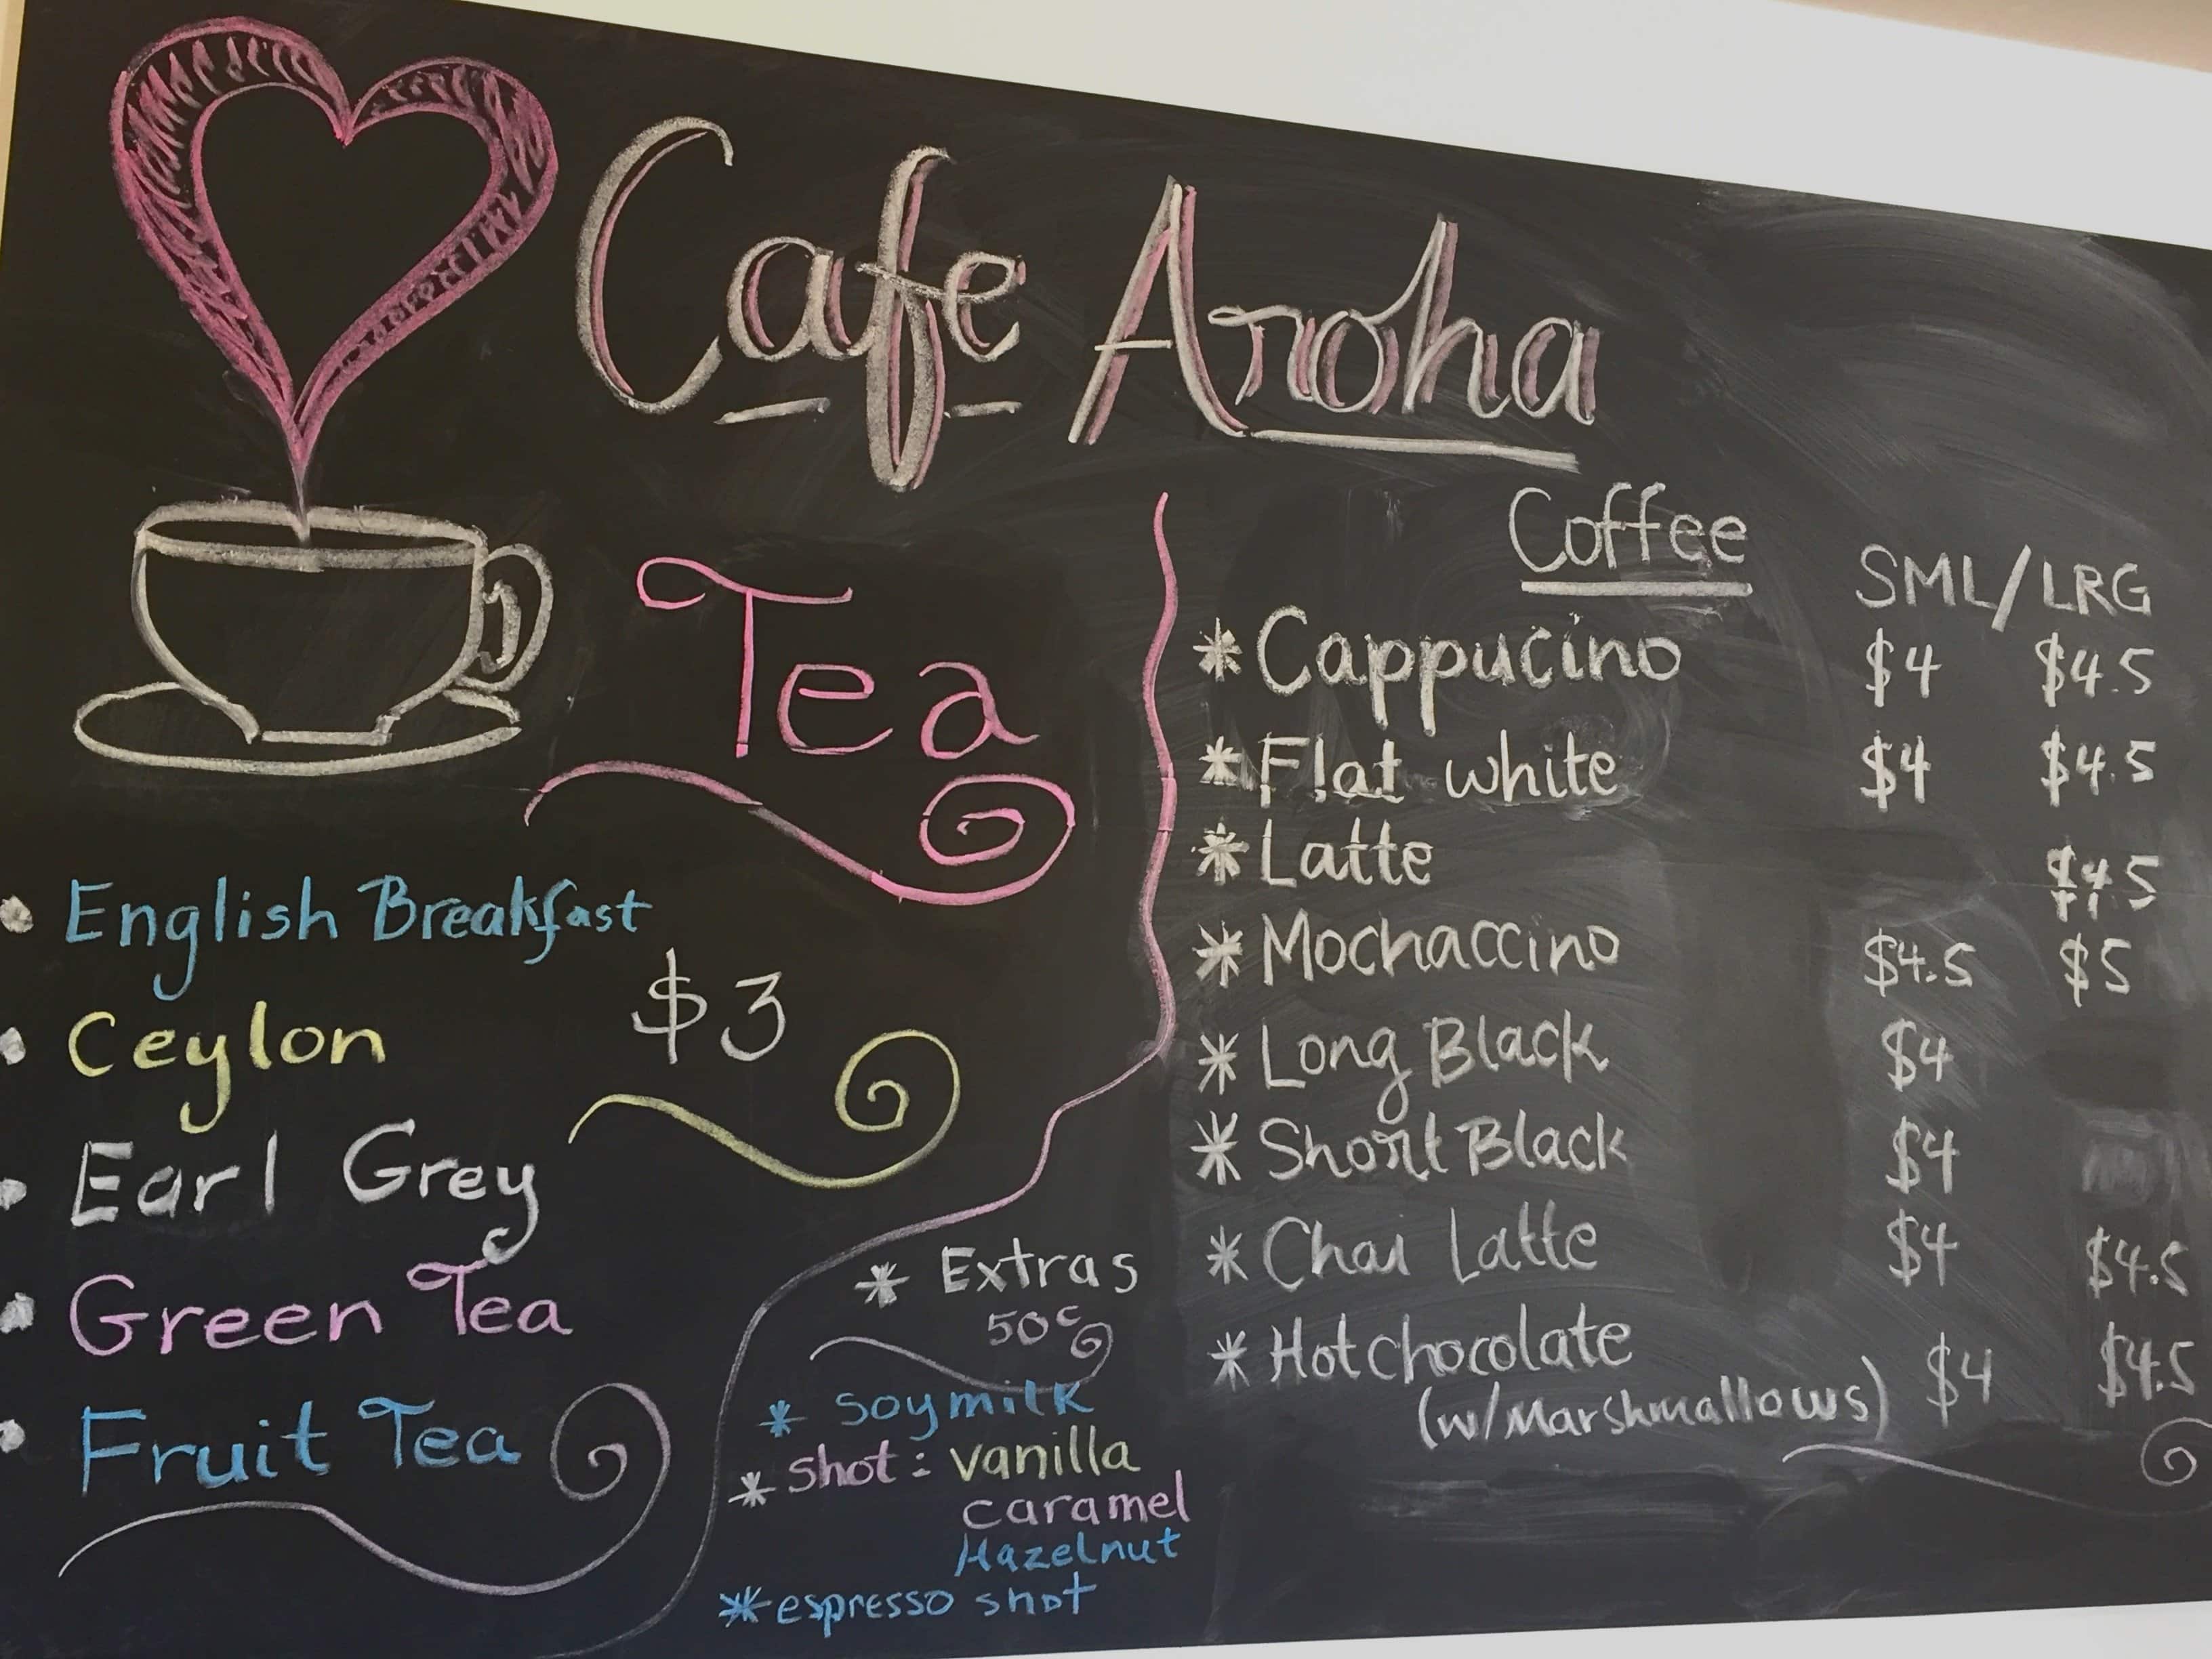 Cafe Aroha
Tea
English Breakfast
Ceylon
$3
Earl Grey
Green Tea
Fruit Tea
* Extras
50c
* Soymilk
* Shot: vanilla
caramel
Hazelnut
* espresso shot
Coffee
SML/LRG
* Cappucino $4 $4.5
* Flat white $4 $4.5
* Latte $4.5
* Mochaccino $4.5 $5
* Long Black $4
* Short Black $4
* Chai Latte $4 $4.5
* Hot chocolate
(w/Marshmallows) $4 $4.5